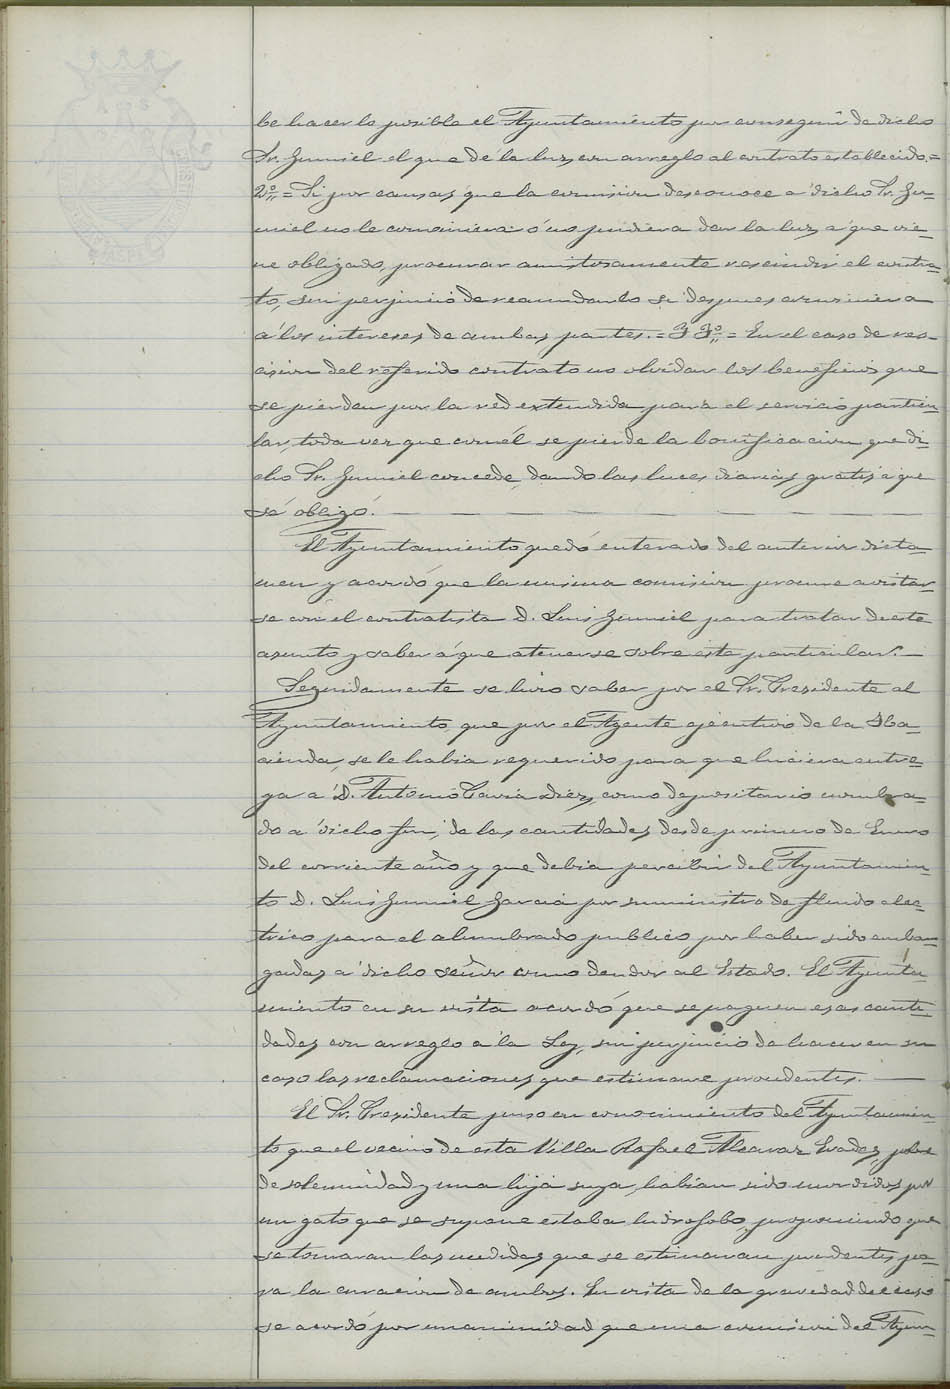 be hacer lo posible el Ayuntamiento por conseguir de dicho
Sr. Jumiel el que dé la luz con arreglo al contrato establecido.=
2º= Si por causas que la comision desconoce a dicho Sr. Ju-
miel no le conviniera ó no pudiera dar la luz, a que vie-
ne obligado, procurar amistosamente rescindir el contra-
to, sin perjuicio de reanudarlo si despues conviniera
a los intereses de ambas partes.= Y 3º= En el caso de res-
cision del referido contrato no olvidar los beneficios que
se pierdan por la red extendida para el servicio particu-
lar, toda vez que con él se pierde la bonificacion que di-
cho Sr. Jumiel concede, dando las luces diarias gratis á que
se obligó.
El Ayuntamiento quedó enterado del anterior dicta-
men y acordó que la misma comision procure avistar-
se con el contratista D. Luis Jumiel para tratar de este
asunto y saber á que atenerse sobre este particular.
Seguidamente se hizo saber por el Sr. Presidente al
Ayuntamiento, que por el Agente ejecutivo de la Ha-
cienda, se le habia requerido para que hiciera entre-
ga a D. Antonio Gavia Diez, como depositario nombra-
do a dicho fin, de las cantidades desde primero de Enero
del corriente año y que debia percibir del Ayuntamien-
to D. Luis Jumiel Garcia por suministro de fluido elec-
trico para el alumbrado publico por haber sido embar-
gadas a dicho señor como deudor al Estado. El Ayunta-
miento en su vista acordó que se paguen esas canti-
dades con arreglo a la Ley, sin perjuicio de hacer en su
caso las reclamaciones que estimare procedentes.
El Sr. Presidente puso en conocimiento del Ayuntamien-
to que el vecino de esta Villa Rafael Alcaraz pobre
de solemnidad y una hija suya, habian sido mordidos por
un gato que se supone estaba hidrofobo, proponiendo que
se tomaran las medidas que se estimaran prudentes pa-
ra la curacion de ambos. En vista de la gravedad del caso
se acordó por unanimidad que una comision del Ayun-